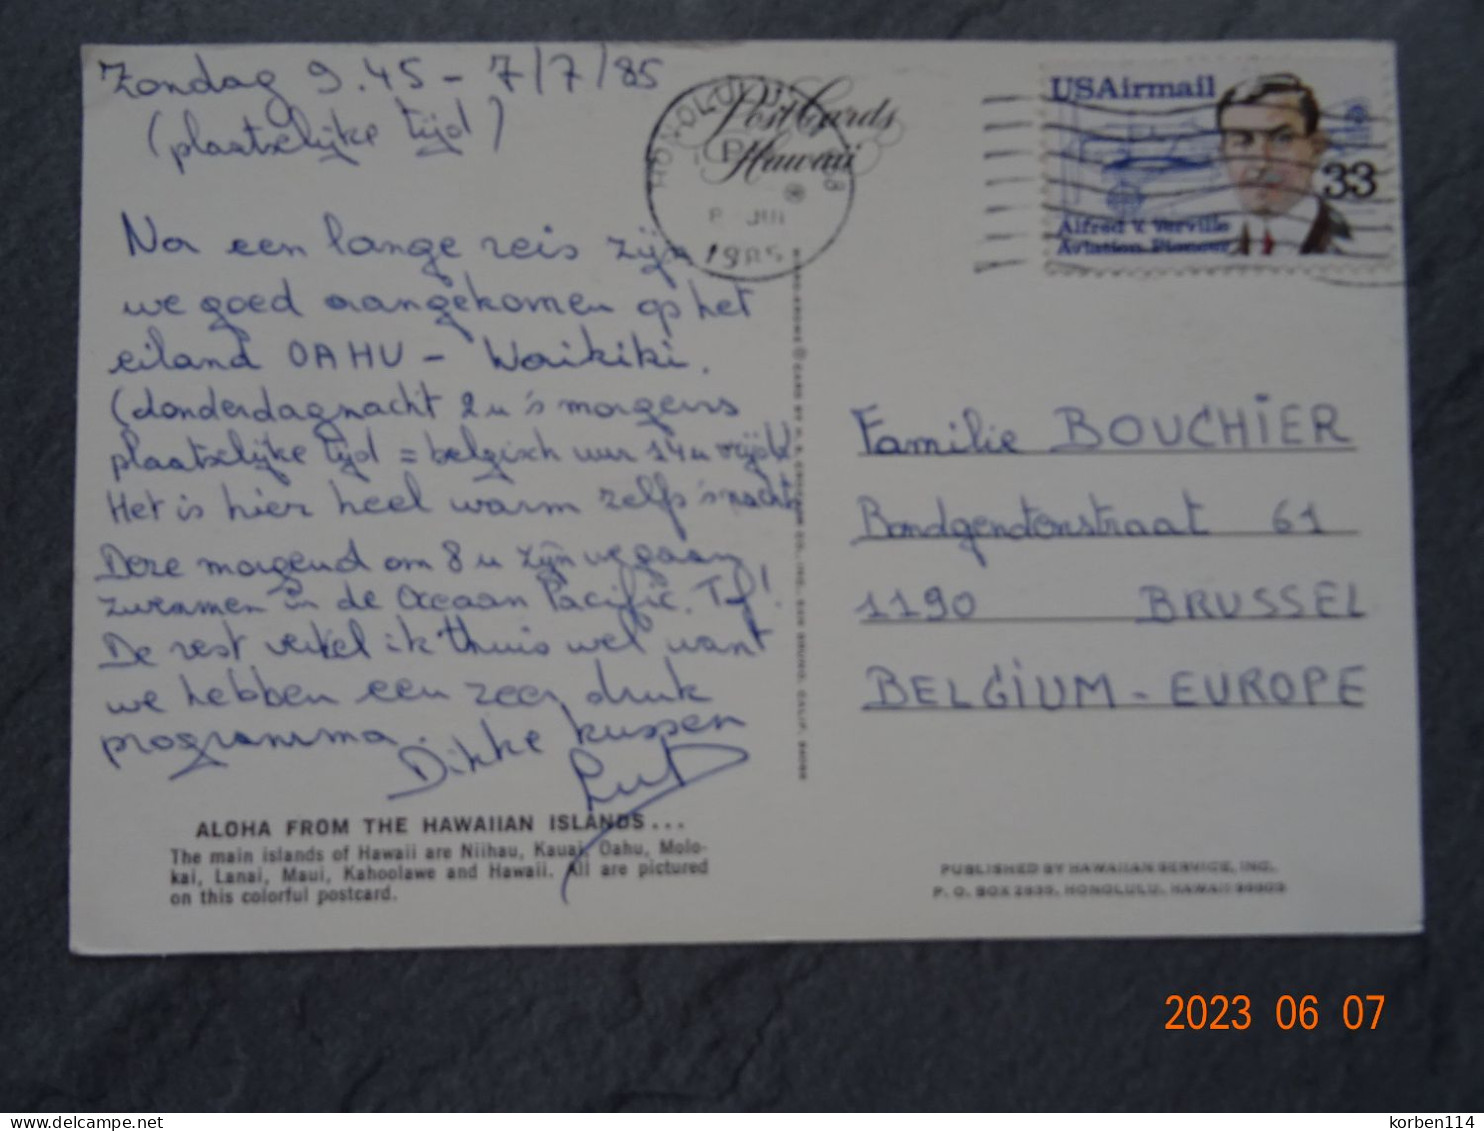 Zondag 9.45 - 7/7/85
(plaatselijke tijd)
Na een lange reis zijn
we goed aangekomen op het
eiland OAHU - Waikiki.
(donderdagnacht 2u 's morgens
plaatselijke tijd = belgisch uur 14u vrijd.)
Het is hier heel warm zelfs 's nachts
Deze morgend om 8 u zijn we gaan
zwemmen in de Oceaan Pacific. Tof!
De rest vertel ik thuis wel want
we hebben een zeer druk
programma. Dikke kussen
ALOHA FROM THE HAWAIIAN ISLANDS...
The main islands of Hawaii are Niihau, Kauai, Oahu, Molo-
kai, Lanai, Maui, Kahoolawe and Hawaii. All are pictured
on this colorful postcard.
HONOLULU
PM
8 JUL
1985
PostCards
Hawaii
USAirmail
33
Alfred V. Verville
Aviation Pioneer
Familie BOUCHIER
Bondgenotenstraat 61
1190 BRUSSEL
BELGIUM - EUROPE
PUBLISHED BY HAWAIIAN SERVICE, INC.
P. O. BOX 2835, HONOLULU, HAWAII 96803
2023 06 07
korben114